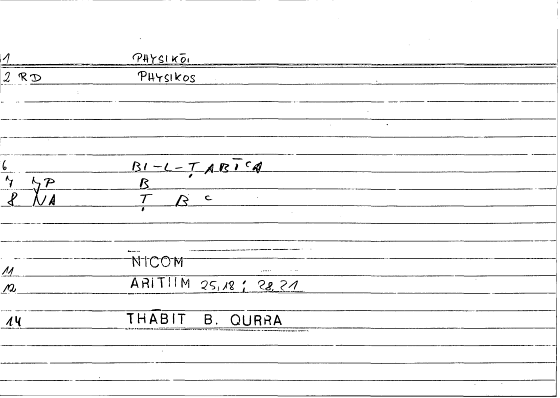 1 PHYSIKŌI
2 RD PHYSIKOS
6 BI-L-ṬABĪCA
7 4P B
8 NA Ṭ B C
11 NICOM
12 ARITIIM 25,18; 28,21
14 THĀBIT B. QURRA